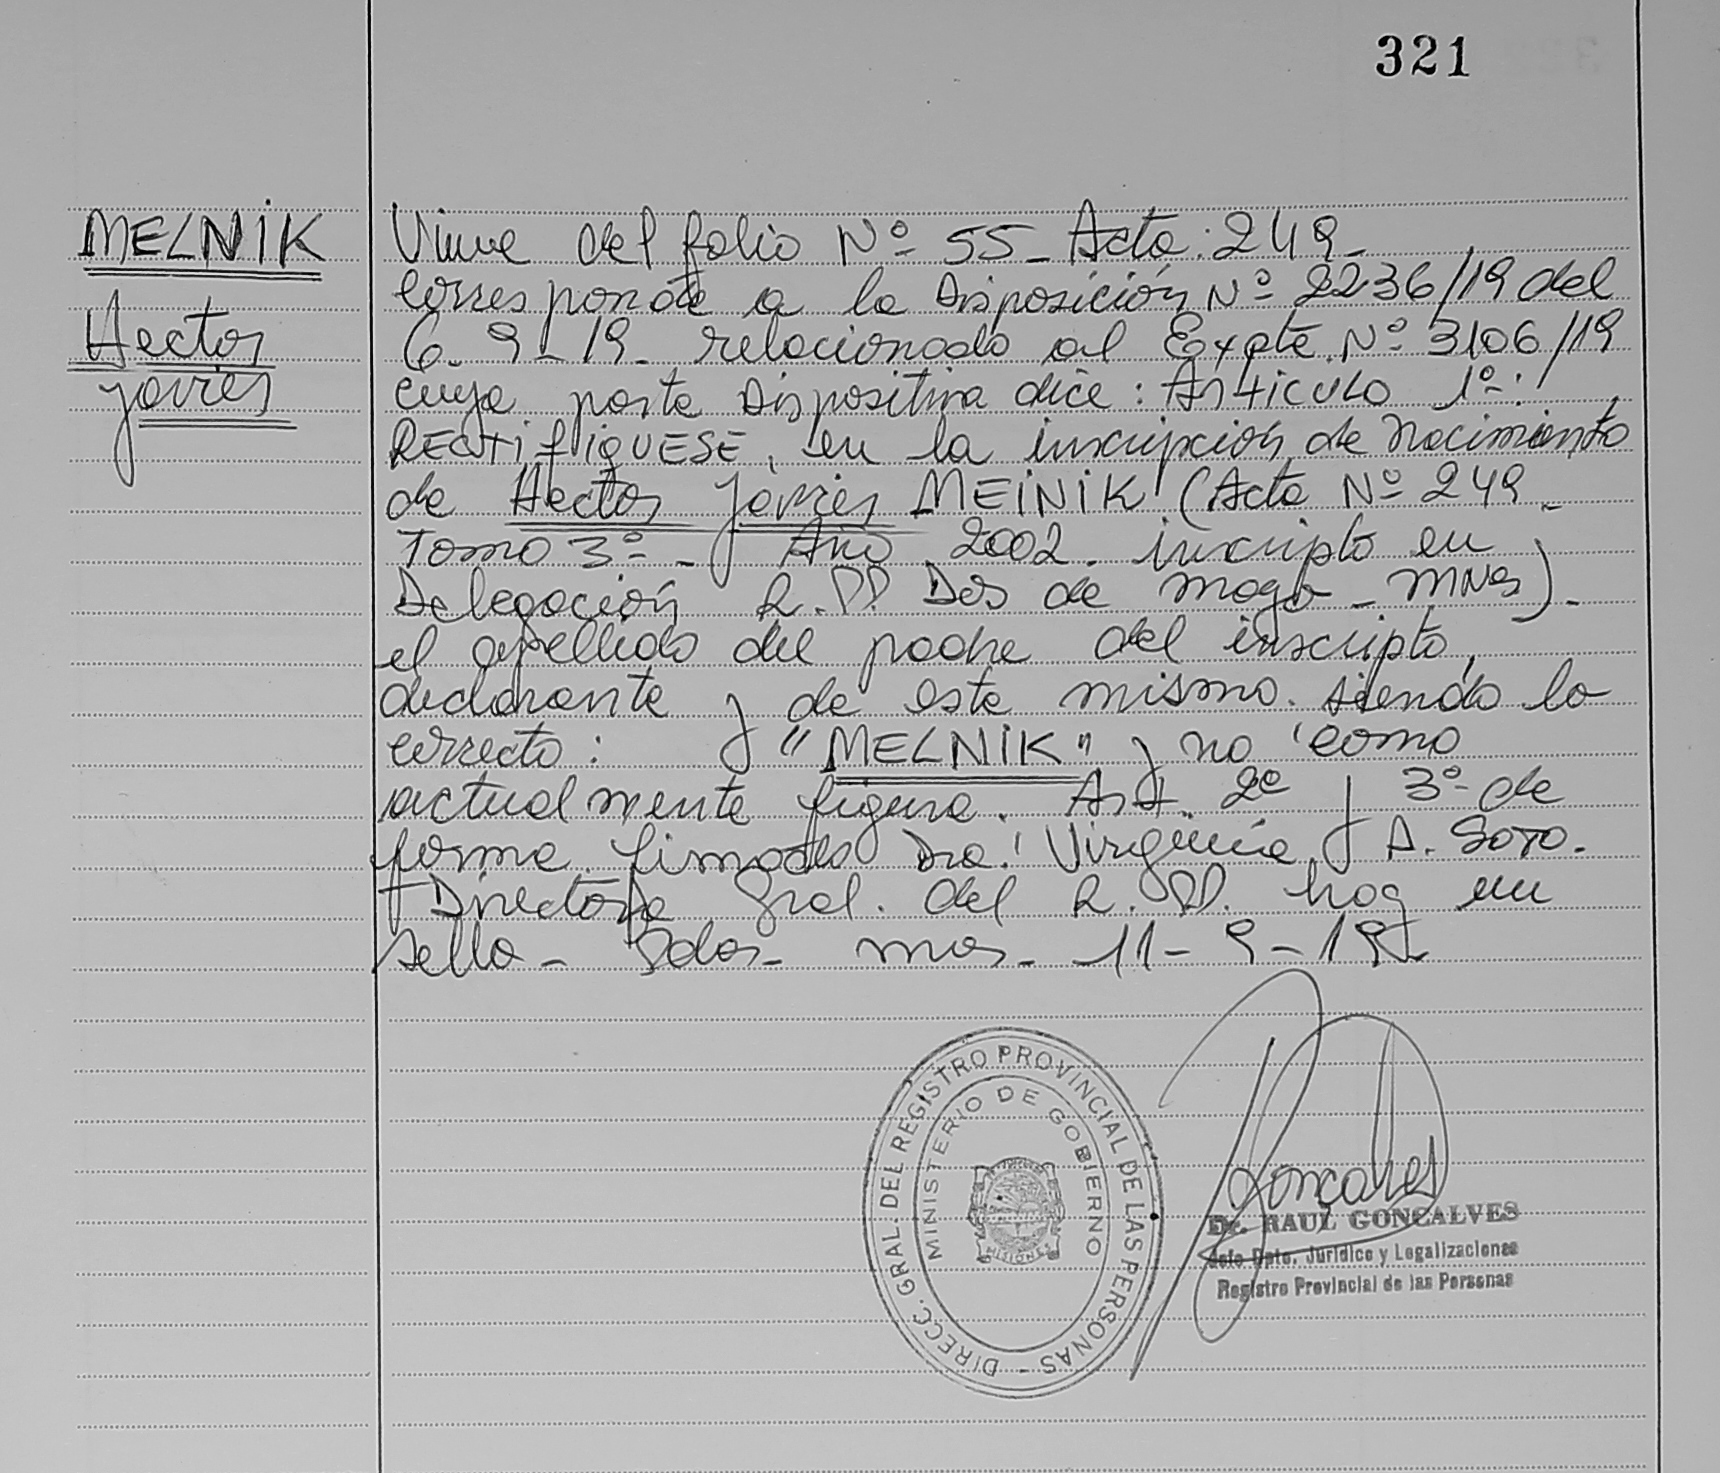 321
MELNIK
Hector
Javier
Viene del folio Nº 55 - Acta: 249 -
corresponde a la Disposición Nº 2236/19 del
6 - 9 - 19 - relacionado al Expte. Nº 3106/19
cuya parte Dispositiva dice: Articulo 1º:
RECTIFIQUESE, en la inscripción de Nacimiento
de Hector Javier MEINIK (Acta Nº 249 -
Tomo 3º - Año 2002. inscripto en
Delegación R.PP. Dos de mayo - mnes) -
el apellido del padre del inscripto,
declarante y de este mismo. siendo lo
correcto: "MELNIK" y no como
actualmente figura. Art. 2º y 3º de
forma. firmado Dra. Virginia A. SOTO.
Directora Gral. del R.PP. hay un
sello - Pdas - mnes - 11 - 9 - 19
DIRECC. GRAL. DEL REGISTRO PROVINCIAL DE LAS PERSONAS -
MINISTERIO DE GOBIERNO
MISIONES
Gonçalves
Dr. RAUL GONCALVES
Jefe Dpto. Jurídico y Legalizaciones
Registro Provincial de las Personas